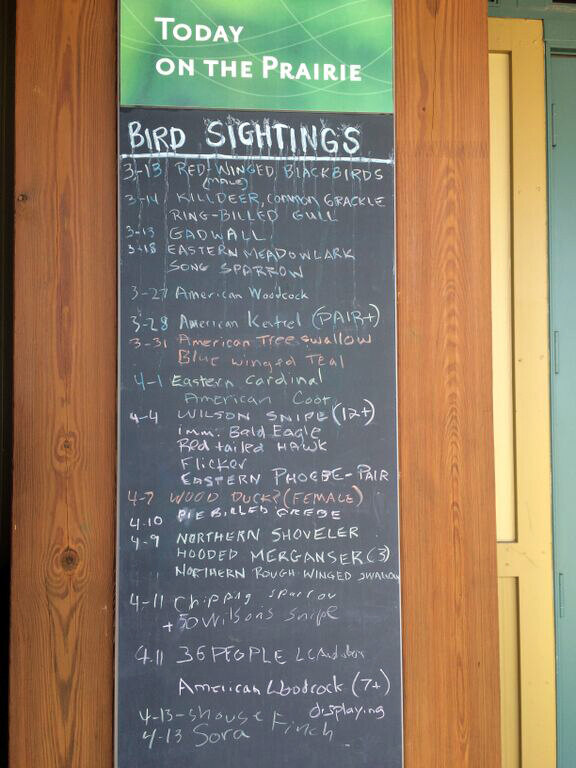 TODAY
ON THE PRAIRIE
BIRD SIGHTINGS
3-13 RED-WINGED BLACKBIRDS
(MALE)
3-14 KILLDEER, COMMON GRACKLE
RING-BILLED GULL
3-13 GADWALL
3-18 EASTERN MEADOWLARK
SONG SPARROW
3-27 American Woodcock
3-28 American Kestrel (PAIR+)
3-31 American Tree swallow
Blue winged Teal
4-1 Eastern Cardinal
American Coot
4-4 WILSON SNIPE (12+)
imm. Bald Eagle
Red tailed HAWK
Flicker
EASTERN PHOEBE-PAIR
4-7 WOOD DUCK? (FEMALE)
4-10 PIE BILLED GREBE
4-9 NORTHERN SHOVELER
HOODED MERGANSER (3)
NORTHERN ROUGH-WINGED SWALLOW
4-11 Chipping sparrow
+50 Wilson's Snipe
4-11 36 PEOPLE LC Audubon
American Woodcock (7+)
displaying
4-13- House Finch
4-13 Sora